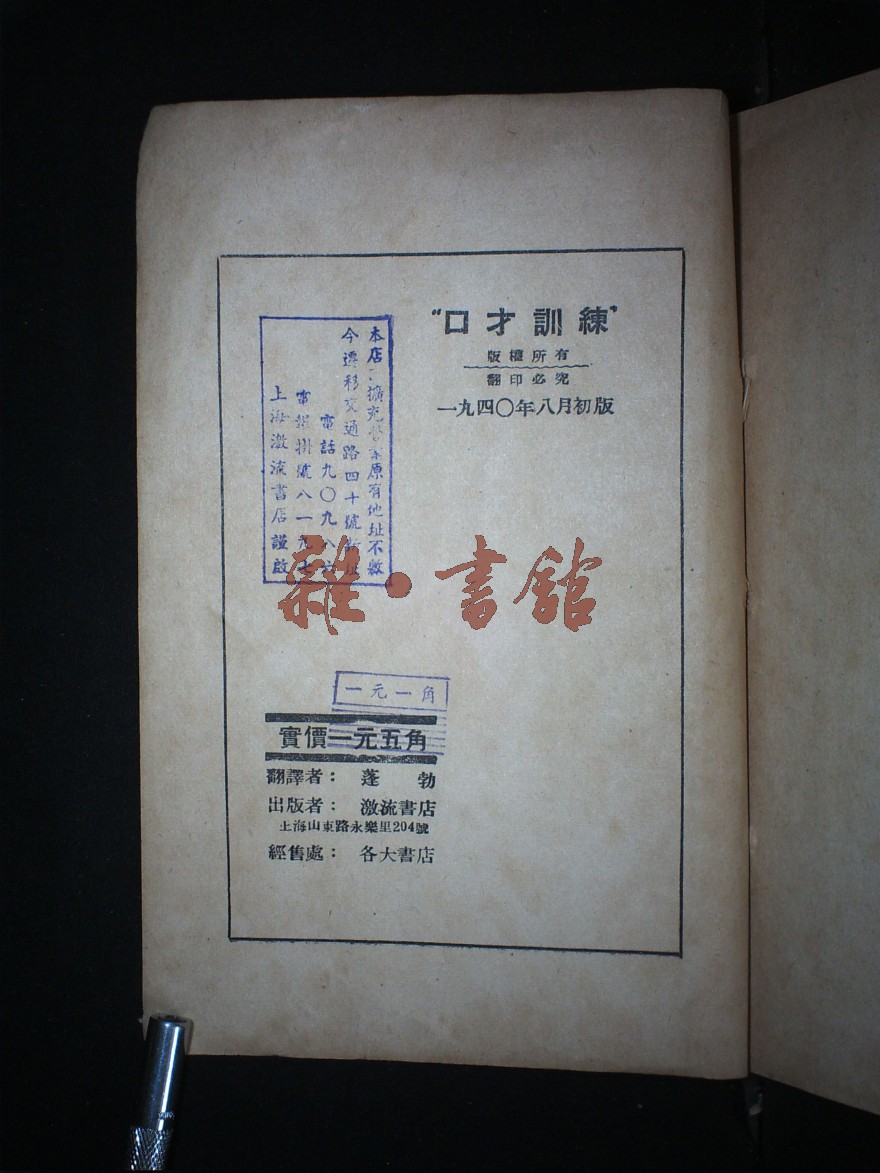 “口才訓練”
版權所有
翻印必究
一九四〇年八月初版
本店 擴充 原有地址不敷
今遷移交通路四十號 址
電話九〇九八六
電報掛號八一九七
上海激流書店謹啟
雜·書館
一元一角
實價一元五角
翻譯者：蓬勃
出版者：激流書店
上海山東路永樂里204號
經售處：各大書店